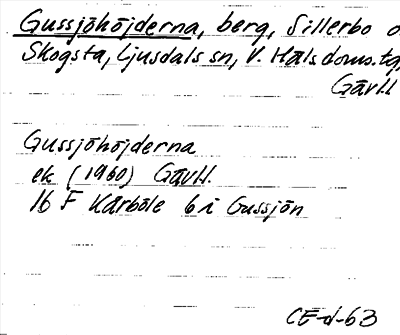 Gussjöhöjderna, berg, Sillerbo o.
Skogsta, Ljusdals sn, V. Häls. doms. tg,
Gävl.l
Gussjöhöjderna
ek (1960) Gävl.l.
16 F Kårböle 6 i Gussjön
CE-d-63